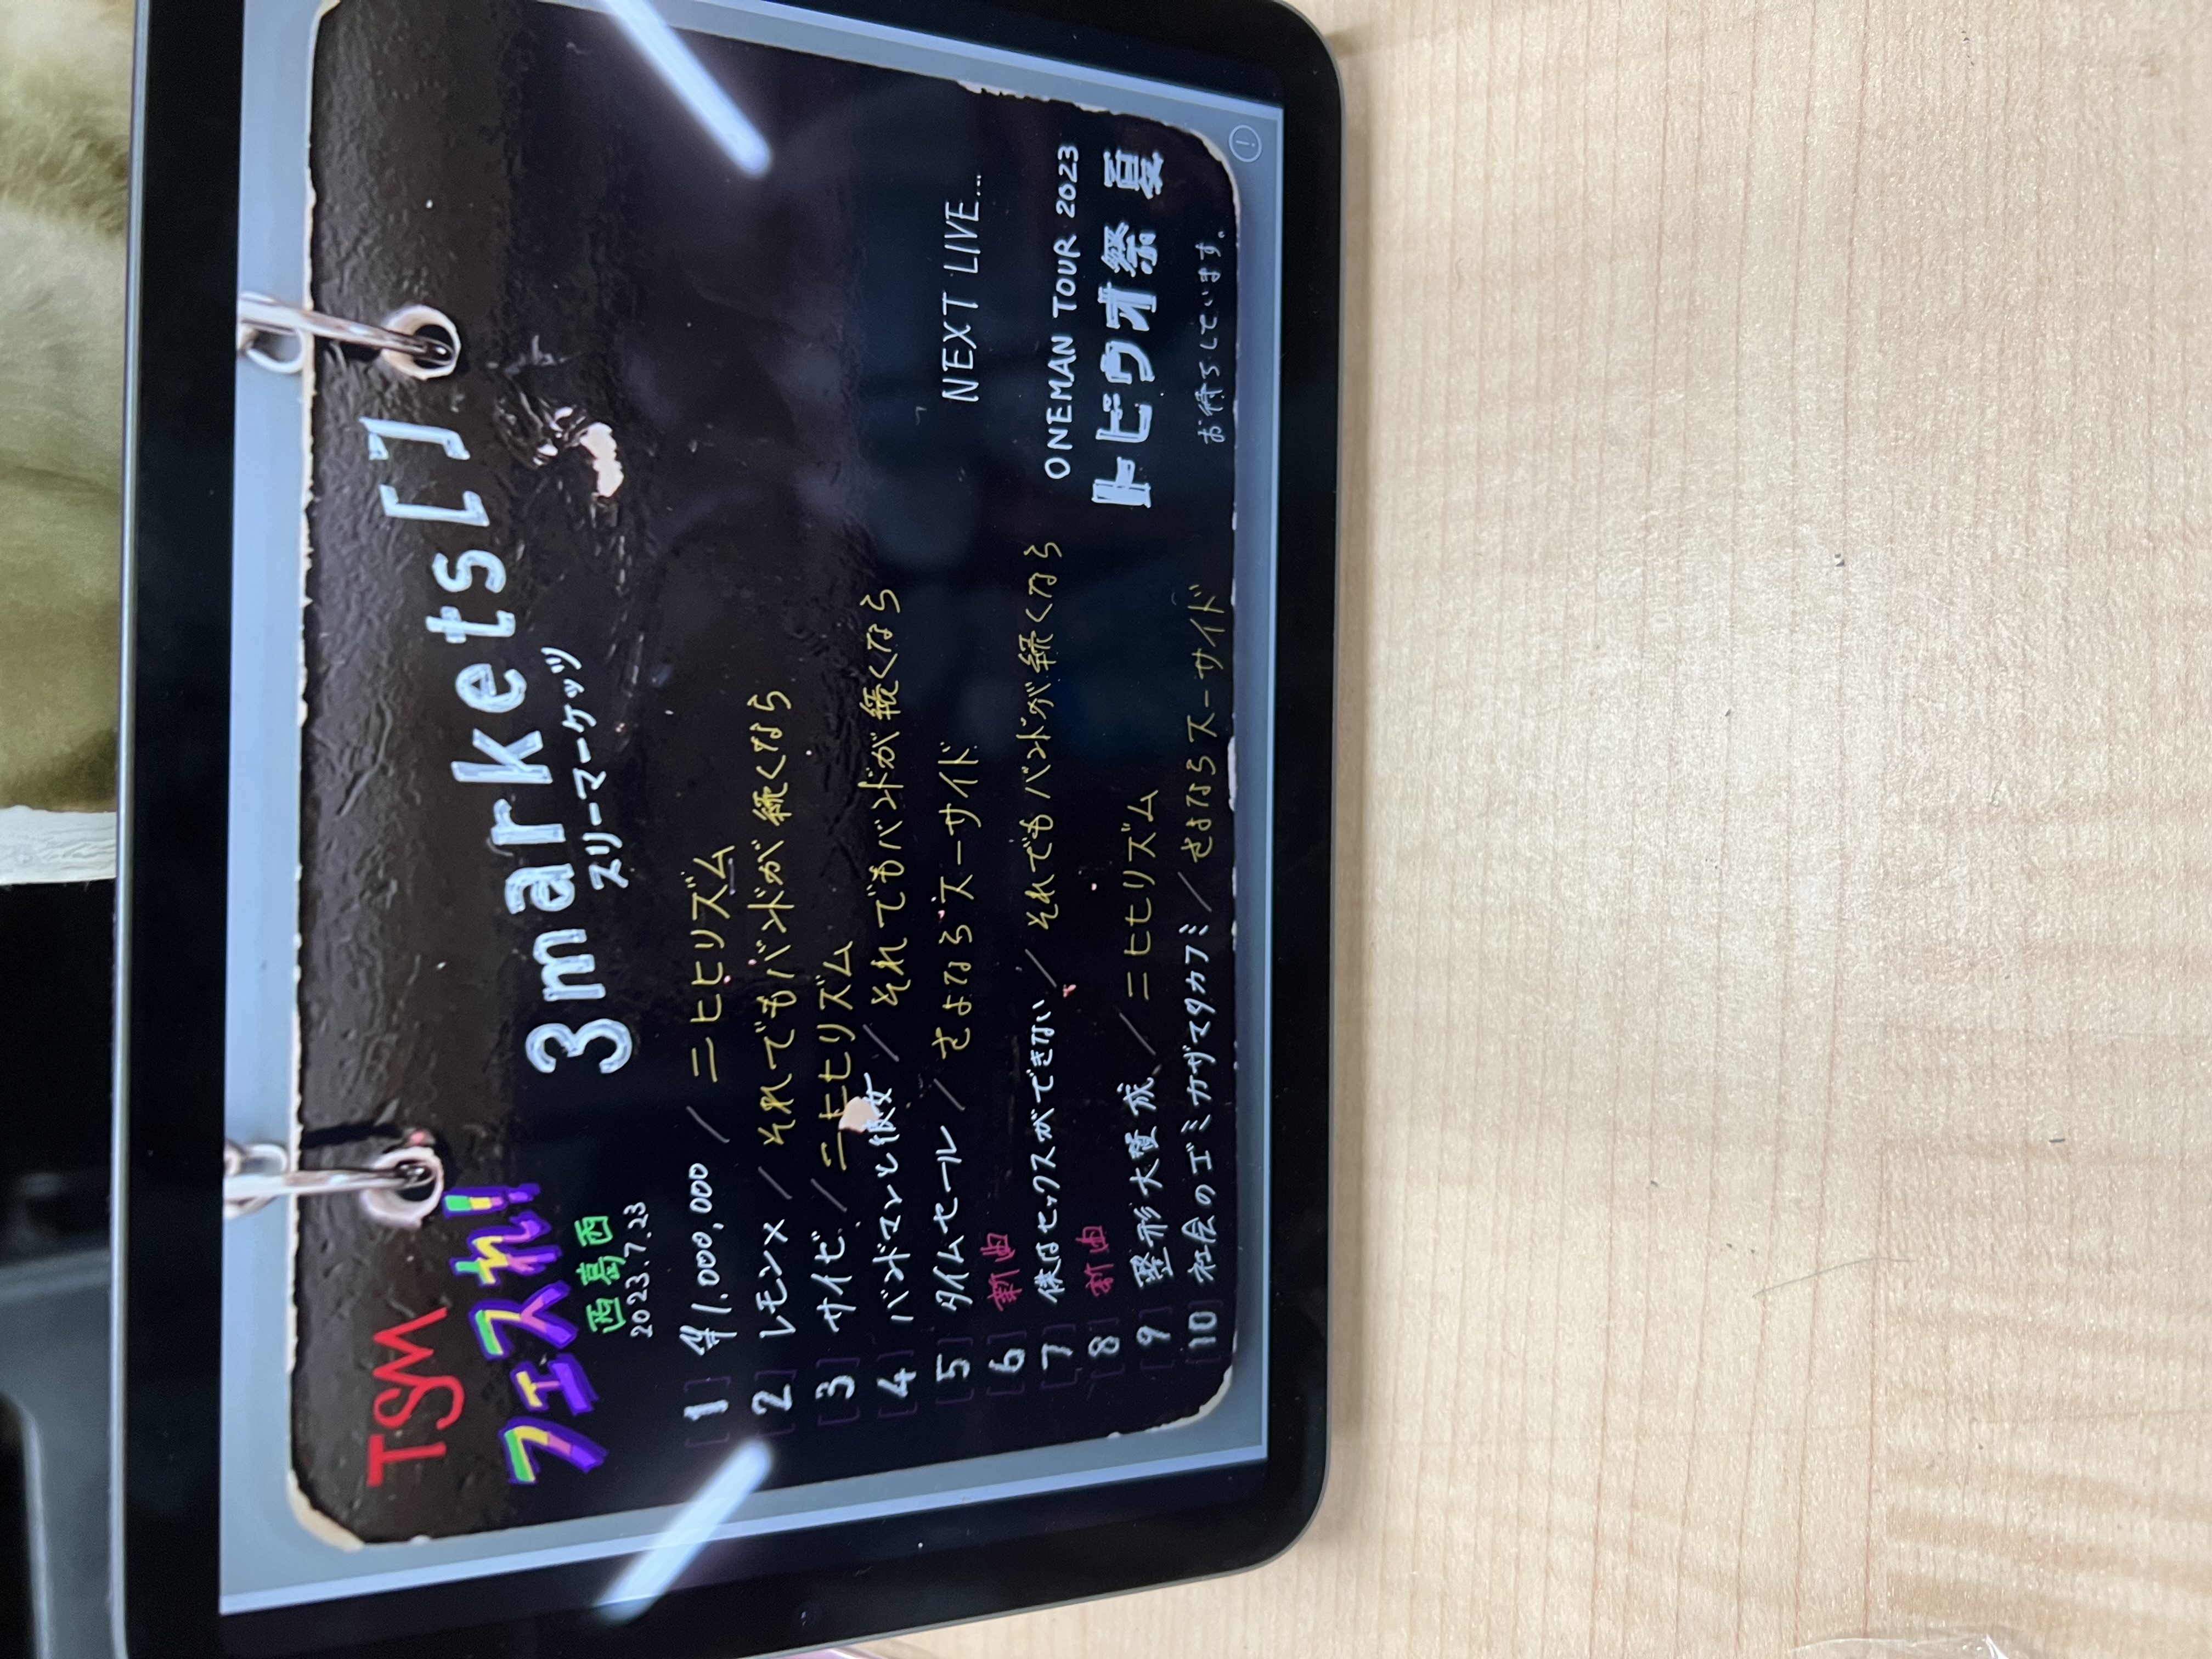 TSM
フェスれ!
西葛西
2023.7.23
3markets[]
スリーマーケッツ
[1] ¥1,000,000 / ニヒヒリズム
[2] レモン× / それでもバンドが続くなら
[3] サイゼ / ニヒヒリズム
[4] バンドマンと彼女 / それでもバンドが続くなら
[5] タイムセール / さよならスーサイド
[6] 新曲
[7] 僕はセックスができない / それでもバンドが続くなら
[8] 新曲
[9] 整形大賛成 / ニヒヒリズム
[10] 社会のゴミカザマタカフミ / さよならスーサイド
NEXT LIVE...
ONEMAN TOUR 2023
トビウオ祭 夏
お待ちしています。